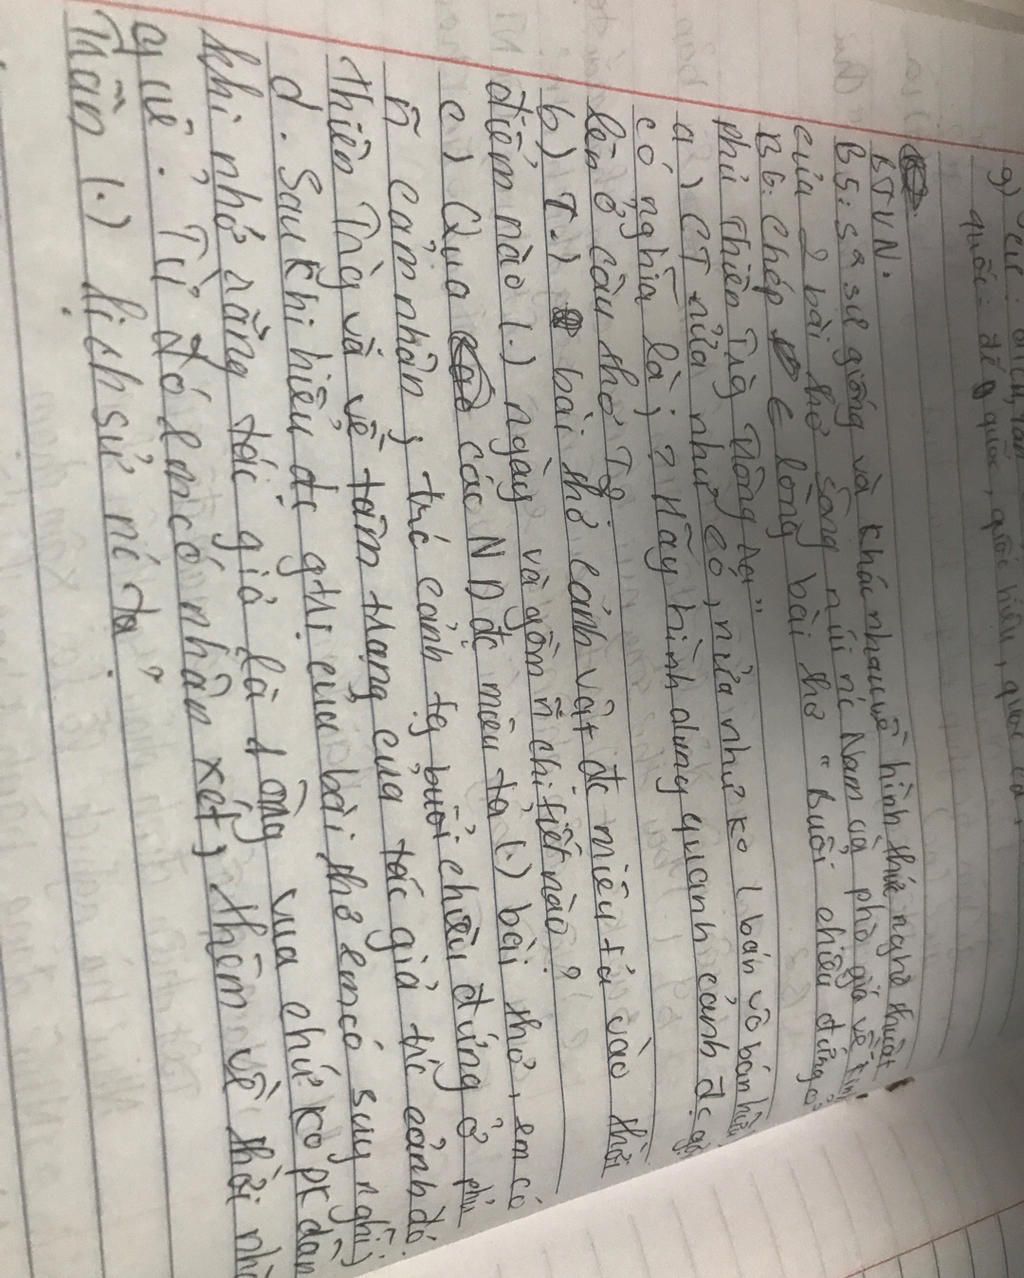 g)
quốc: đế quốc, quốc hiệu, quốc ca,
BTVN:
B5: So sự giống và khác nhau về hình thức nghệ thuật
của 2 bài thơ Sông núi nc Nam và phò giá về kinh
B6: Chép lòng bài thơ "Buổi chiều đứng ở
phủ Thiên Trg trông ra"
a) CT nửa như có, nửa như ko (bán vô bán hữu)
có nghĩa là j? Hãy hình dung quanh cảnh đc gợi
lên ở câu thơ T2
b) T.) bài thơ cảnh vật đc miêu tả vào thời
điểm nào (.) ngày và gồm n̄ chi tiết nào?
c) Qua các ND đc miêu tả (.) bài thơ, em có
n̄ cảm nhận j trc cảnh tg buổi chiều đứng ở phủ
Thiên Trg và về tâm trạng của tác giả trc cảnh đó.
d. Sau khi hiểu đc gtrị của bài thơ em có suy nghĩ j
khi nhớ rằng tác giả là 1 ông vua chứ ko pk dân
quê. Từ đó em có nhận xét j thêm về thời nhà
Trần (.) lịch sử nc ta?